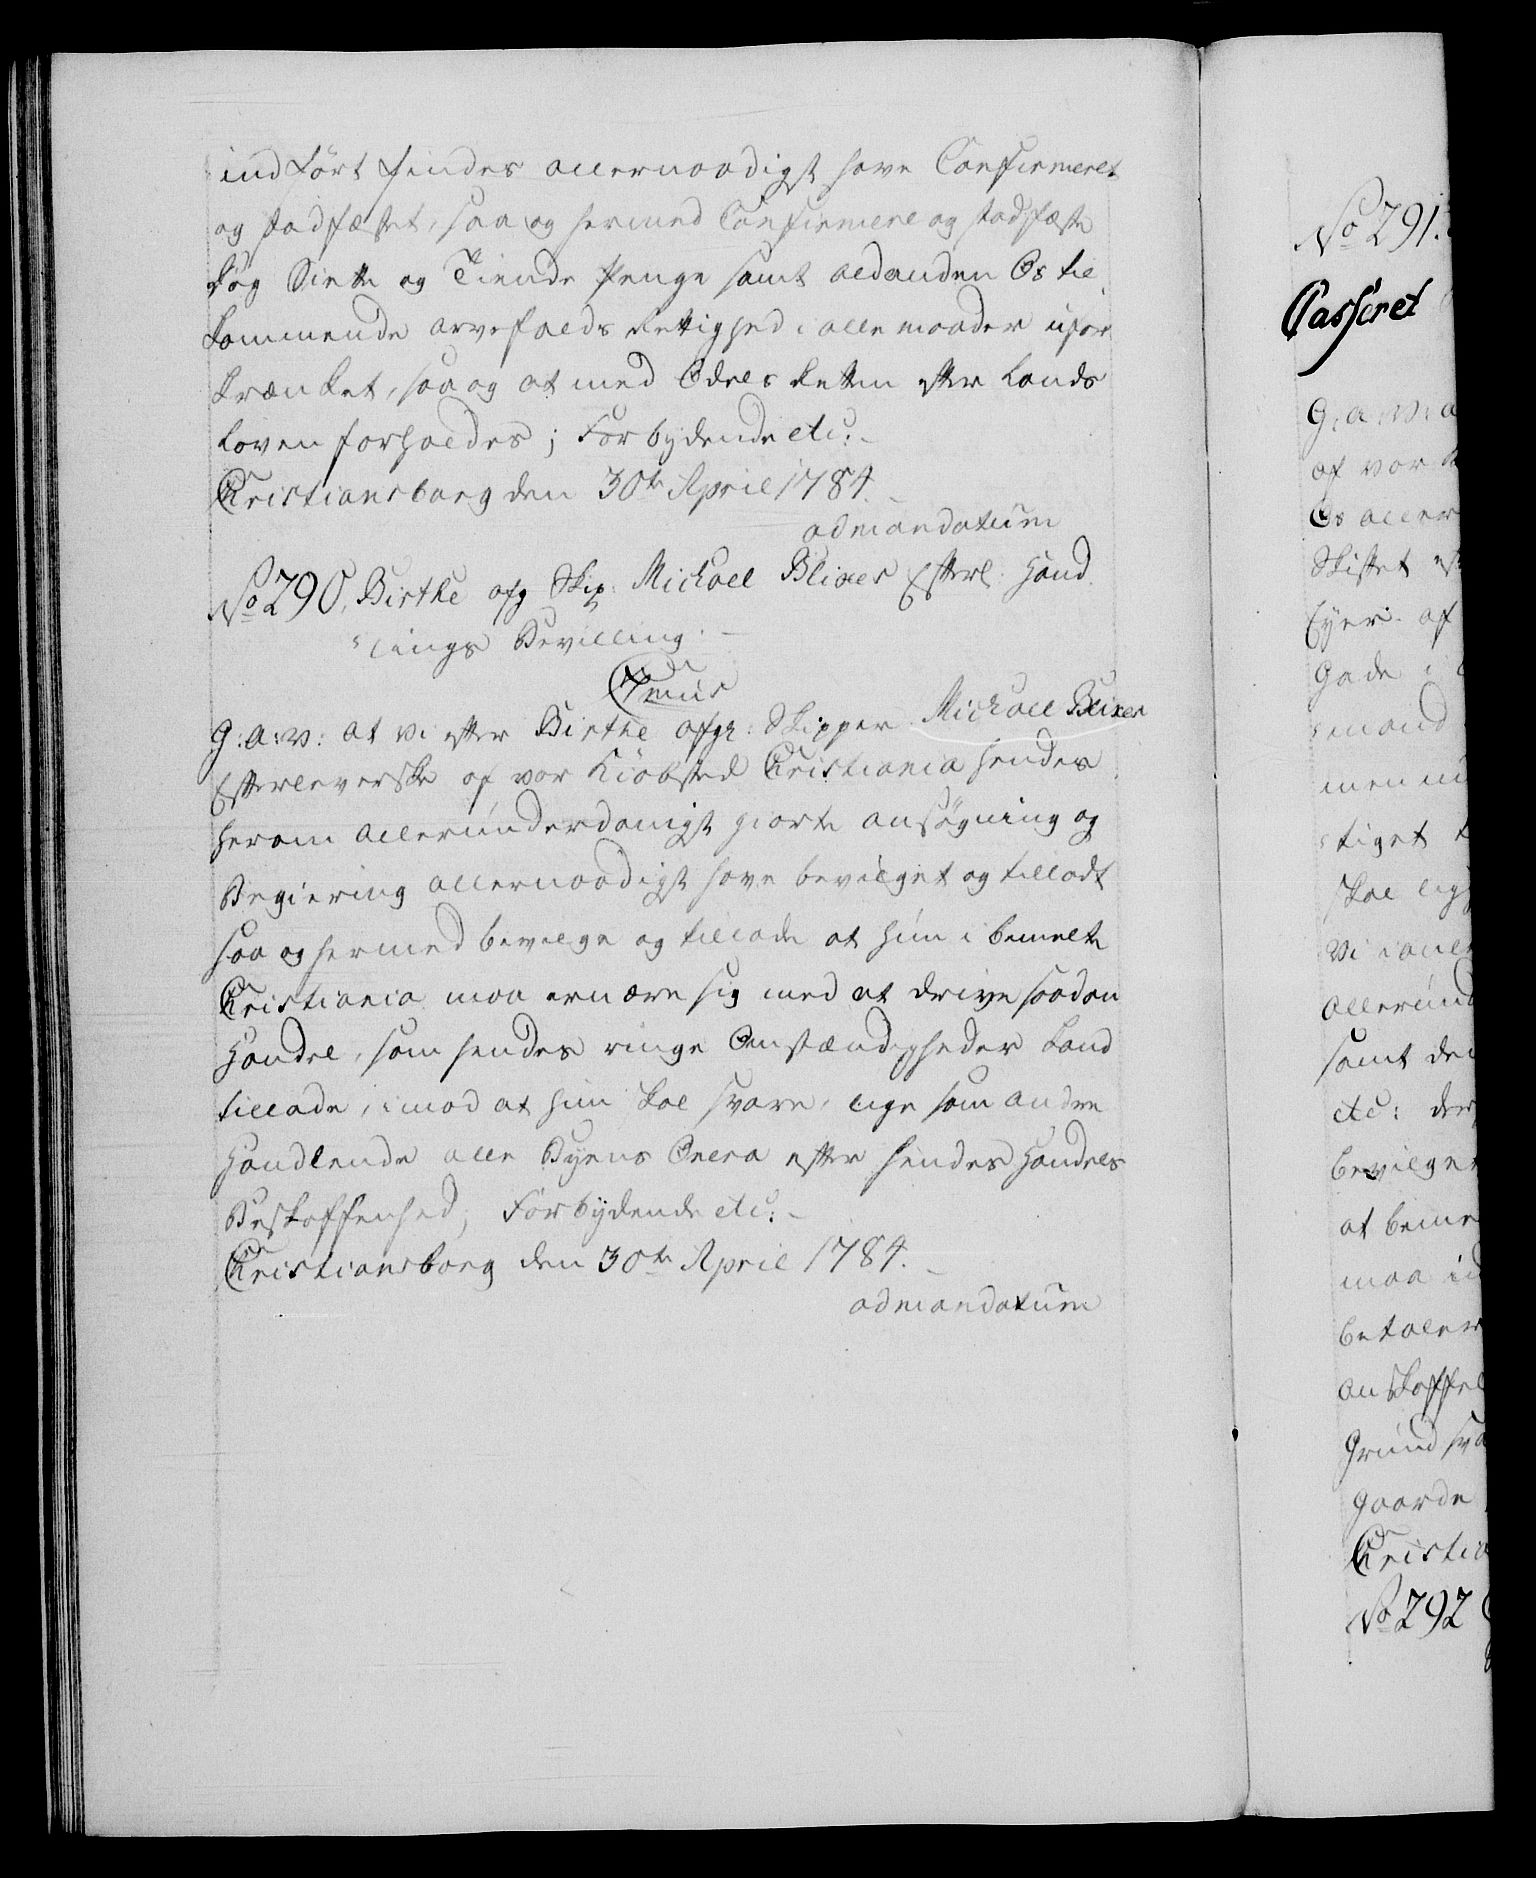 indført findes allernaadigst have Confirmeret
og stadfæstet, saa og hermed Confirmere og stadfæste
dog Siette og Tiende Penge samt al anden Os til¬
kommende arvefalds Rettighed i alle maader ufor¬
krænket, saa og at med Odels Retten efter Lands
Loven forholdes; Forbydende etc:
Christiansborg den 30te April 1784.
ad mandatum
No 290. Birthe afg Skip: Michael Blixes Efterl: Hand¬
lings Bevilling.
G: A: V: at vi efter Birthe afgr: Skipper Michael Blixes
Efterleverske af vor Kiøbsted Christiania hendes
herom allerunderdanigst giorte ansøgning og
Begiering allernaadigst have bevilget og tilladt
saa og hermed bevilge og tillade at hun i bemelte
Christiania maa ernære sig med at drive saadan
Handel, som hendes ringe Omstændigheder kand
tillade, imod at hun skal svare, lige som andre
Handlende alle Byens Onera efter hendes Handels
Beskaffenhed; Forbydende etc:
Christiansborg den 30te April 1784.
ad mandatum
No 291.
Casseret
G: a: v: a
af vor
Os aller
Skiftet
Eyer af
Gade i
mand
men
tiget
skal
Vi
allerund
samt
etc: der
bevilge
at beme
maa
betaler
anskaffe
Grund sva
Gaarde
Christia
No 292